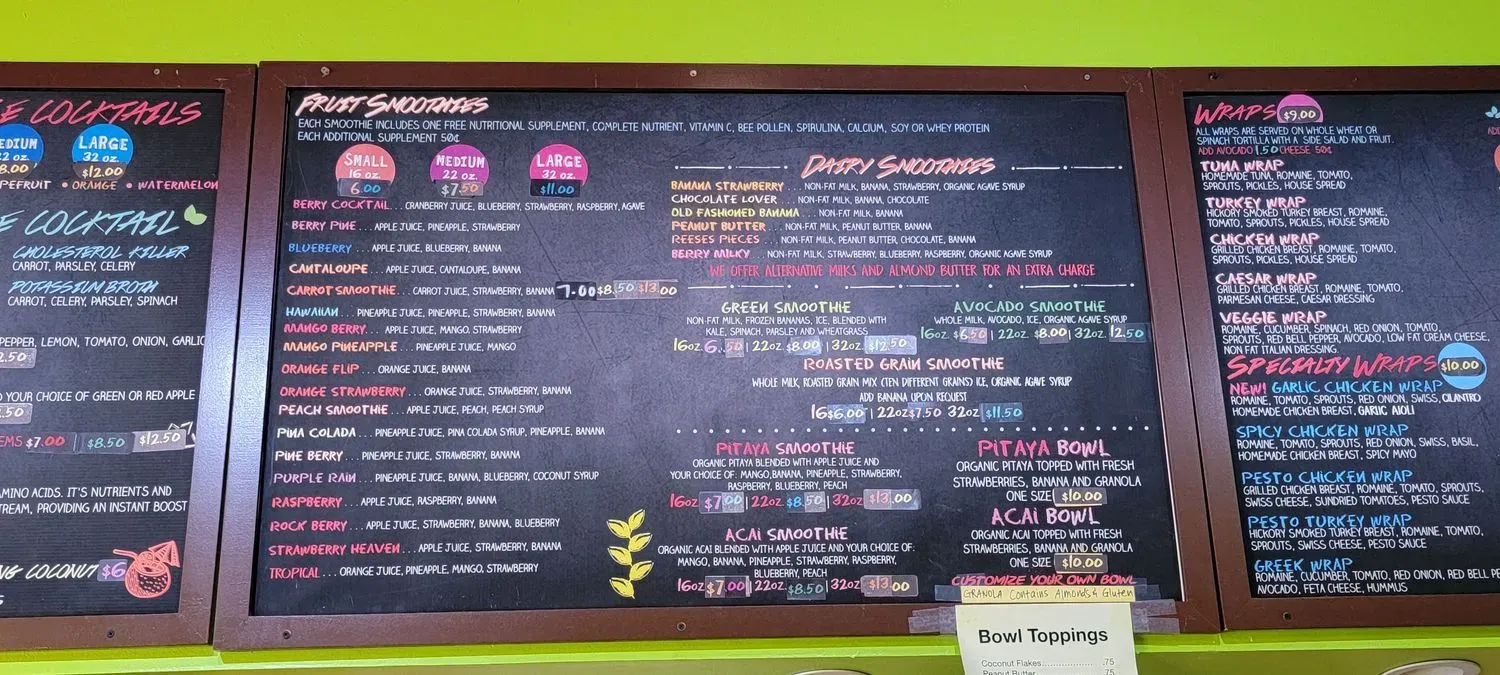 E COCKTAILS
EDIUM
22 oz.
8.00
LARGE
32 oz.
$12.00
PEFRUIT • ORANGE • WATERMELON
E COCKTAIL
CHOLESTEROL KILLER
CARROT, PARSLEY, CELERY
POTASSIUM BROTH
CARROT, CELERY, PARSLEY, SPINACH
PEPPER, LEMON, TOMATO, ONION, GARLIC
2.50
D YOUR CHOICE OF GREEN OR RED APPLE
.50
EMS $7.00 | $8.50 | $12.50
AMINO ACIDS. IT'S NUTRIENTS AND
TREAM, PROVIDING AN INSTANT BOOST
NG COCONUT $6
S
FRUIT SMOOTHIES
EACH SMOOTHIE INCLUDES ONE FREE NUTRITIONAL SUPPLEMENT, COMPLETE NUTRIENT, VITAMIN C, BEE POLLEN, SPIRULINA, CALCIUM, SOY OR WHEY PROTEIN
EACH ADDITIONAL SUPPLEMENT 50¢
SMALL
16 oz.
6.00
MEDIUM
22 oz.
$7.50
LARGE
32 oz.
$11.00
BERRY COCKTAIL... CRANBERRY JUICE, BLUEBERRY, STRAWBERRY, RASPBERRY, AGAVE
BERRY PINE... APPLE JUICE, PINEAPPLE, STRAWBERRY
BLUEBERRY... APPLE JUICE, BLUEBERRY, BANANA
CANTALOUPE... APPLE JUICE, CANTALOUPE, BANANA
CARROT SMOOTHIE... CARROT JUICE, STRAWBERRY, BANANA 7.00 $8.50 $13.00
HAWAIIAN... PINEAPPLE JUICE, PINEAPPLE, STRAWBERRY, BANANA
MANGO BERRY... APPLE JUICE, MANGO, STRAWBERRY
MANGO PINEAPPLE... PINEAPPLE JUICE, MANGO
ORANGE FLIP... ORANGE JUICE, BANANA
ORANGE STRAWBERRY... ORANGE JUICE, STRAWBERRY, BANANA
PEACH SMOOTHIE... APPLE JUICE, PEACH, PEACH SYRUP
PINA COLADA... PINEAPPLE JUICE, PINA COLADA SYRUP, PINEAPPLE, BANANA
PINE BERRY... PINEAPPLE JUICE, STRAWBERRY, BANANA
PURPLE RAIN... PINEAPPLE JUICE, BANANA, BLUEBERRY, COCONUT SYRUP
RASPBERRY... APPLE JUICE, RASPBERRY, BANANA
ROCK BERRY... APPLE JUICE, STRAWBERRY, BANANA, BLUEBERRY
STRAWBERRY HEAVEN... APPLE JUICE, STRAWBERRY, BANANA
TROPICAL... ORANGE JUICE, PINEAPPLE, MANGO, STRAWBERRY
DAIRY SMOOTHIES
BANANA STRAWBERRY... NON-FAT MILK, BANANA, STRAWBERRY, ORGANIC AGAVE SYRUP
CHOCOLATE LOVER... NON-FAT MILK, BANANA, CHOCOLATE
OLD FASHIONED BANANA... NON-FAT MILK, BANANA
PEANUT BUTTER... NON-FAT MILK, PEANUT BUTTER, BANANA
REESES PIECES... NON-FAT MILK, PEANUT BUTTER, CHOCOLATE, BANANA
BERRY MILKY... NON-FAT MILK, STRAWBERRY, BLUEBERRY, RASPBERRY, ORGANIC AGAVE SYRUP
WE OFFER ALTERNATIVE MILKS AND ALMOND BUTTER FOR AN EXTRA CHARGE
GREEN SMOOTHIE
NON-FAT MILK, FROZEN BANANAS, ICE, BLENDED WITH
KALE, SPINACH, PARSLEY AND WHEATGRASS
16oz 6.50 | 22oz $8.00 | 32oz $12.50
AVOCADO SMOOTHIE
WHOLE MILK, AVOCADO, ICE, ORGANIC AGAVE SYRUP
16oz $6.50 | 22oz. $8.00 | 32oz. 12.50
ROASTED GRAIN SMOOTHIE
WHOLE MILK, ROASTED GRAIN MIX (TEN DIFFERENT GRAINS) ICE, ORGANIC AGAVE SYRUP
ADD BANANA UPON REQUEST
16 $6.00 | 22oz $7.50 32oz $11.50
PITAYA SMOOTHIE
ORGANIC PITAYA BLENDED WITH APPLE JUICE AND
YOUR CHOICE OF: MANGO, BANANA, PINEAPPLE, STRAWBERRY,
RASPBERRY, BLUEBERRY, PEACH
16oz $7.00 | 22oz $8.50 | 32oz $13.00
ACAI SMOOTHIE
ORGANIC ACAI BLENDED WITH APPLE JUICE AND YOUR CHOICE OF:
MANGO, BANANA, PINEAPPLE, STRAWBERRY, RASPBERRY,
BLUEBERRY, PEACH
16oz $7.00 | 22oz $8.50 | 32oz $13.00
PITAYA BOWL
ORGANIC PITAYA TOPPED WITH FRESH
STRAWBERRIES, BANANA AND GRANOLA
ONE SIZE $10.00
ACAI BOWL
ORGANIC ACAI TOPPED WITH FRESH
STRAWBERRIES, BANANA AND GRANOLA
ONE SIZE $10.00
CUSTOMIZE YOUR OWN BOWL
GRANOLA Contains Almonds & Gluten
Bowl Toppings
Coconut Flakes................. .75
Peanut Butter .75
WRAPS $9.00
ALL WRAPS ARE SERVED ON WHOLE WHEAT OR
SPINACH TORTILLA WITH A SIDE SALAD AND FRUIT.
ADD AVOCADO 1.50 CHEESE 50¢
TUNA WRAP
HOMEMADE TUNA, ROMAINE, TOMATO,
SPROUTS, PICKLES, HOUSE SPREAD
TURKEY WRAP
HICKORY SMOKED TURKEY BREAST, ROMAINE,
TOMATO, SPROUTS, PICKLES, HOUSE SPREAD
CHICKEN WRAP
GRILLED CHICKEN BREAST, ROMAINE, TOMATO,
SPROUTS, PICKLES, HOUSE SPREAD
CAESAR WRAP
GRILLED CHICKEN BREAST, ROMAINE, TOMATO,
PARMESAN CHEESE, CAESAR DRESSING
VEGGIE WRAP
ROMAINE, CUCUMBER, SPINACH, RED ONION, TOMATO,
SPROUTS, RED BELL PEPPER, AVOCADO, LOW FAT CREAM CHEESE,
NON FAT ITALIAN DRESSING.
SPECIALTY WRAPS $10.00
NEW! GARLIC CHICKEN WRAP
ROMAINE, TOMATO, SPROUTS, RED ONION, SWISS, CILANTRO
HOMEMADE CHICKEN BREAST, GARLIC AIOLI
SPICY CHICKEN WRAP
ROMAINE, TOMATO, SPROUTS, RED ONION, SWISS, BASIL,
HOMEMADE CHICKEN BREAST, SPICY MAYO
PESTO CHICKEN WRAP
GRILLED CHICKEN BREAST, ROMAINE, TOMATO, SPROUTS,
SWISS CHEESE, SUNDRIED TOMATOES, PESTO SAUCE
PESTO TURKEY WRAP
HICKORY SMOKED TURKEY BREAST, ROMAINE, TOMATO,
SPROUTS, SWISS CHEESE, PESTO SAUCE
GREEK WRAP
ROMAINE, CUCUMBER, TOMATO, RED ONION, RED BELL PE
AVOCADO, FETA CHEESE, HUMMUS